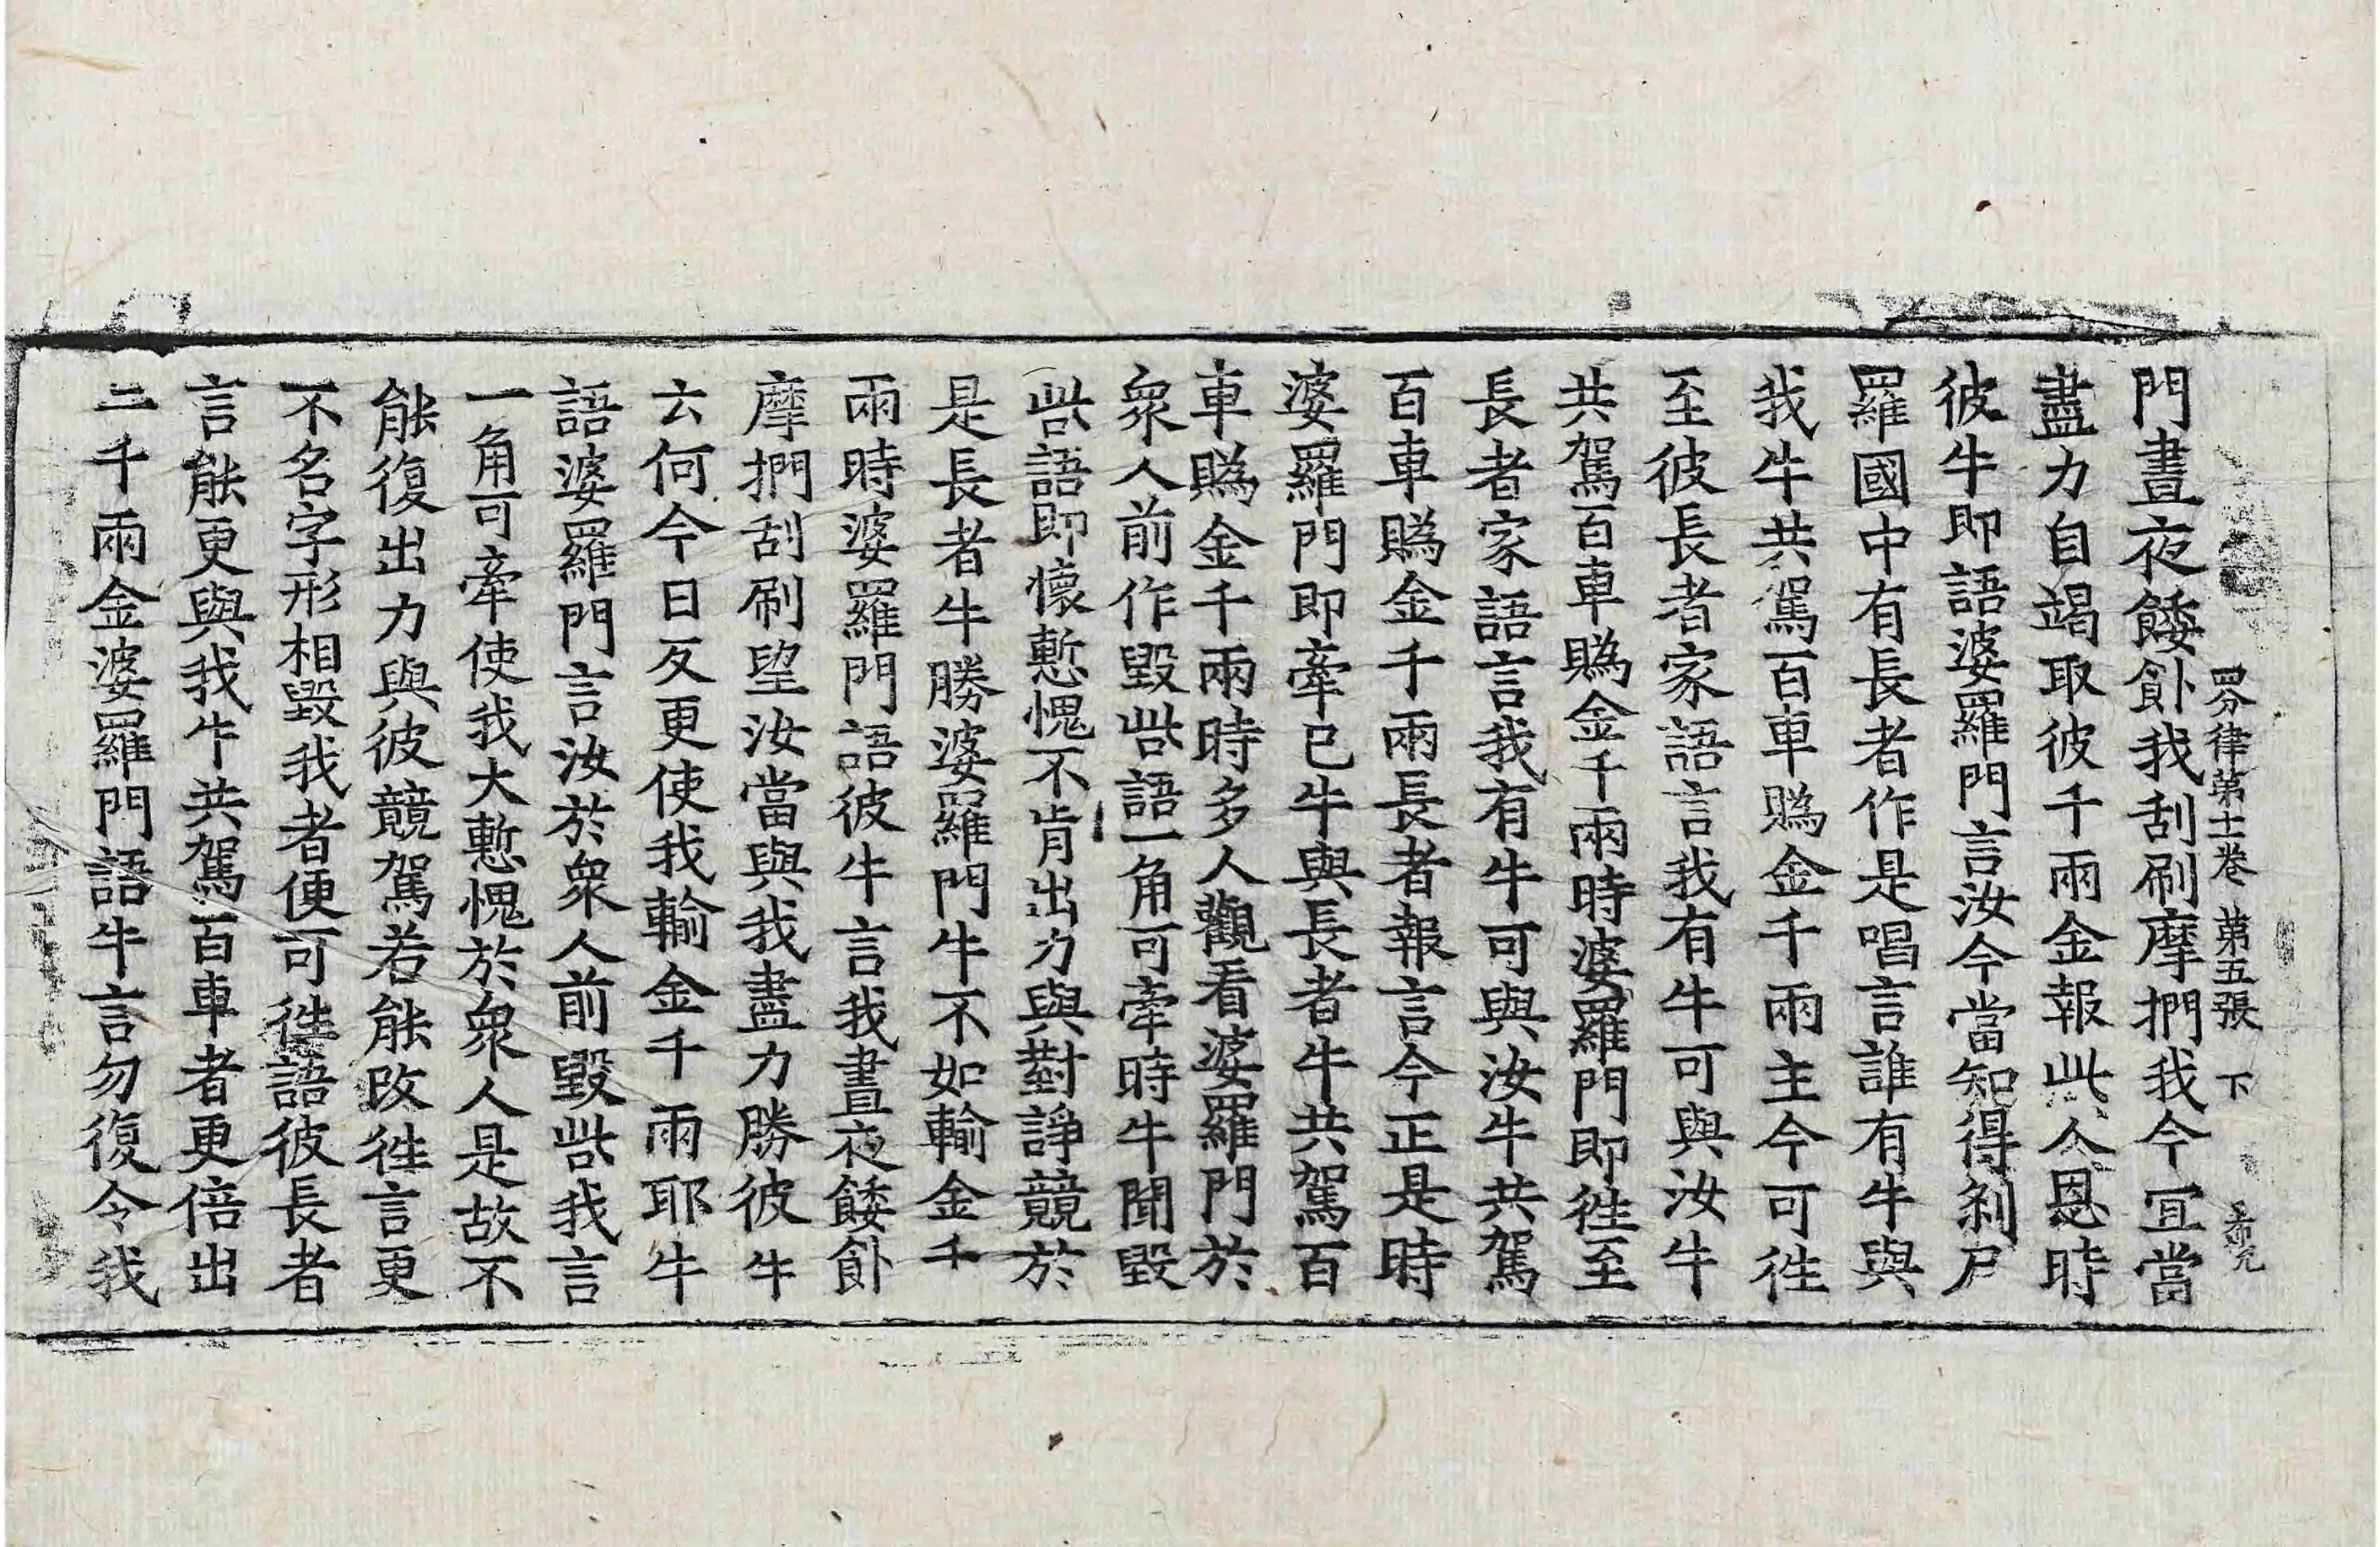 四分律第十一卷 第五張 下
門晝夜餧飤我刮刷摩捫我今宜當
盡力自竭取彼千兩金報此人恩時
彼牛即語婆羅門言汝今當知得剎尸
羅國中有長者作是唱言誰有牛與
我牛共駕百車賭金千兩主今可徃
至彼長者家語言我有牛可與汝牛
共駕百車賭金千兩時婆羅門即徃至
長者家語言我有牛可與汝牛共駕
百車賭金千兩長者報言今正是時
婆羅門即牽已牛與長者牛共駕百
車賭金千兩時多人觀看婆羅門於
衆人前作毀呰語一角可牽時牛聞毀
呰語即懷慙愧不肯出力與對諍競於
是長者牛勝婆羅門牛不如輸金千
兩時婆羅門語彼牛言我晝夜餧飤
摩捫刮刷望汝當與我盡力勝彼牛
云何今日反更使我輸金千兩耶牛
語婆羅門言汝於衆人前毀呰我言
一角可牽使我大慙愧於衆人是故不
能復出力與彼競駕若能改徃言更
不名字形相毀我者便可徃語彼長者
言能更與我牛共駕百車者更倍出
二千兩金婆羅門語牛言勿復令我